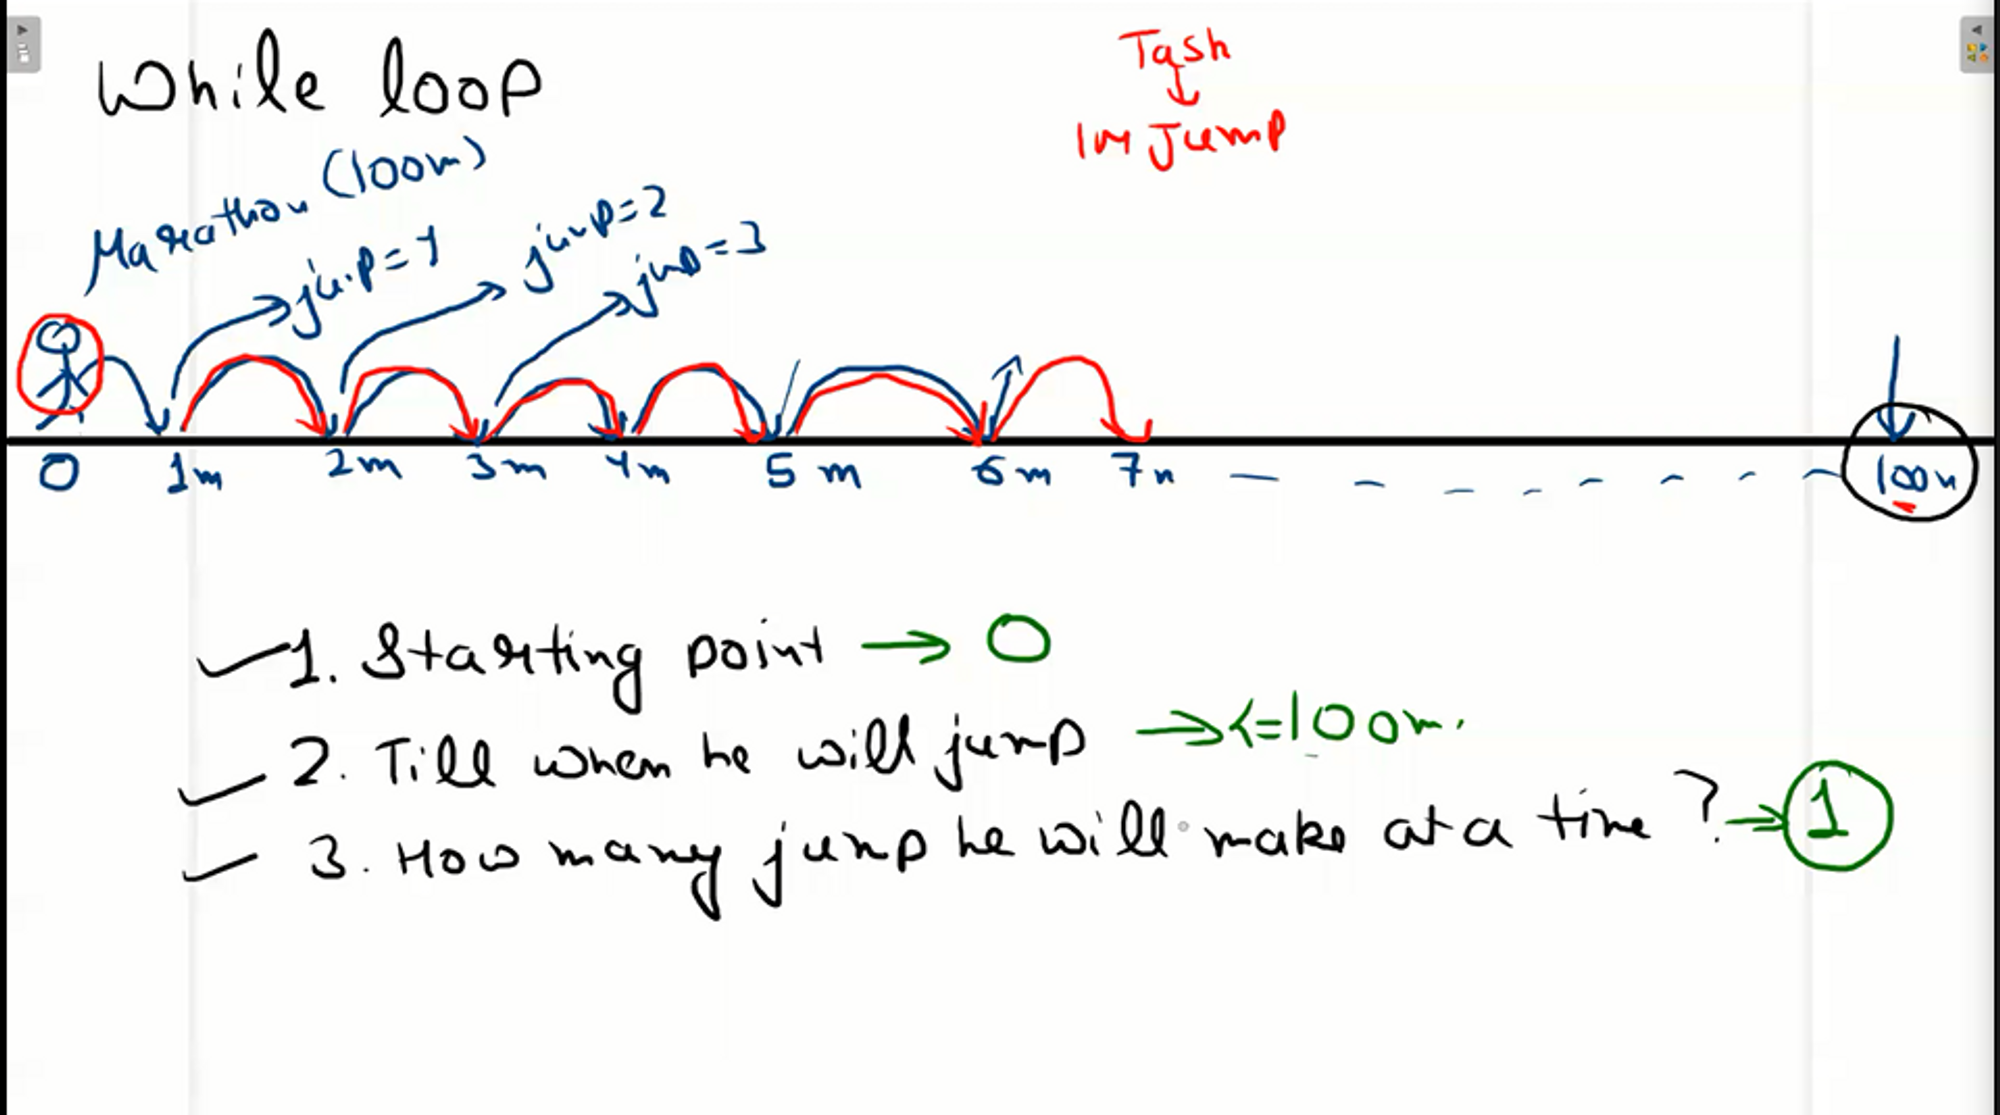 While loop
Task
1M Jump
Marathon (100m)
jump=1
jump=2
jump=3
0 1m 2m 3m 4m 5m 6m 7m 100m
1. Starting point → 0
2. Till when he will jump → <=100m.
3. How many jump he will make at a time? → 1